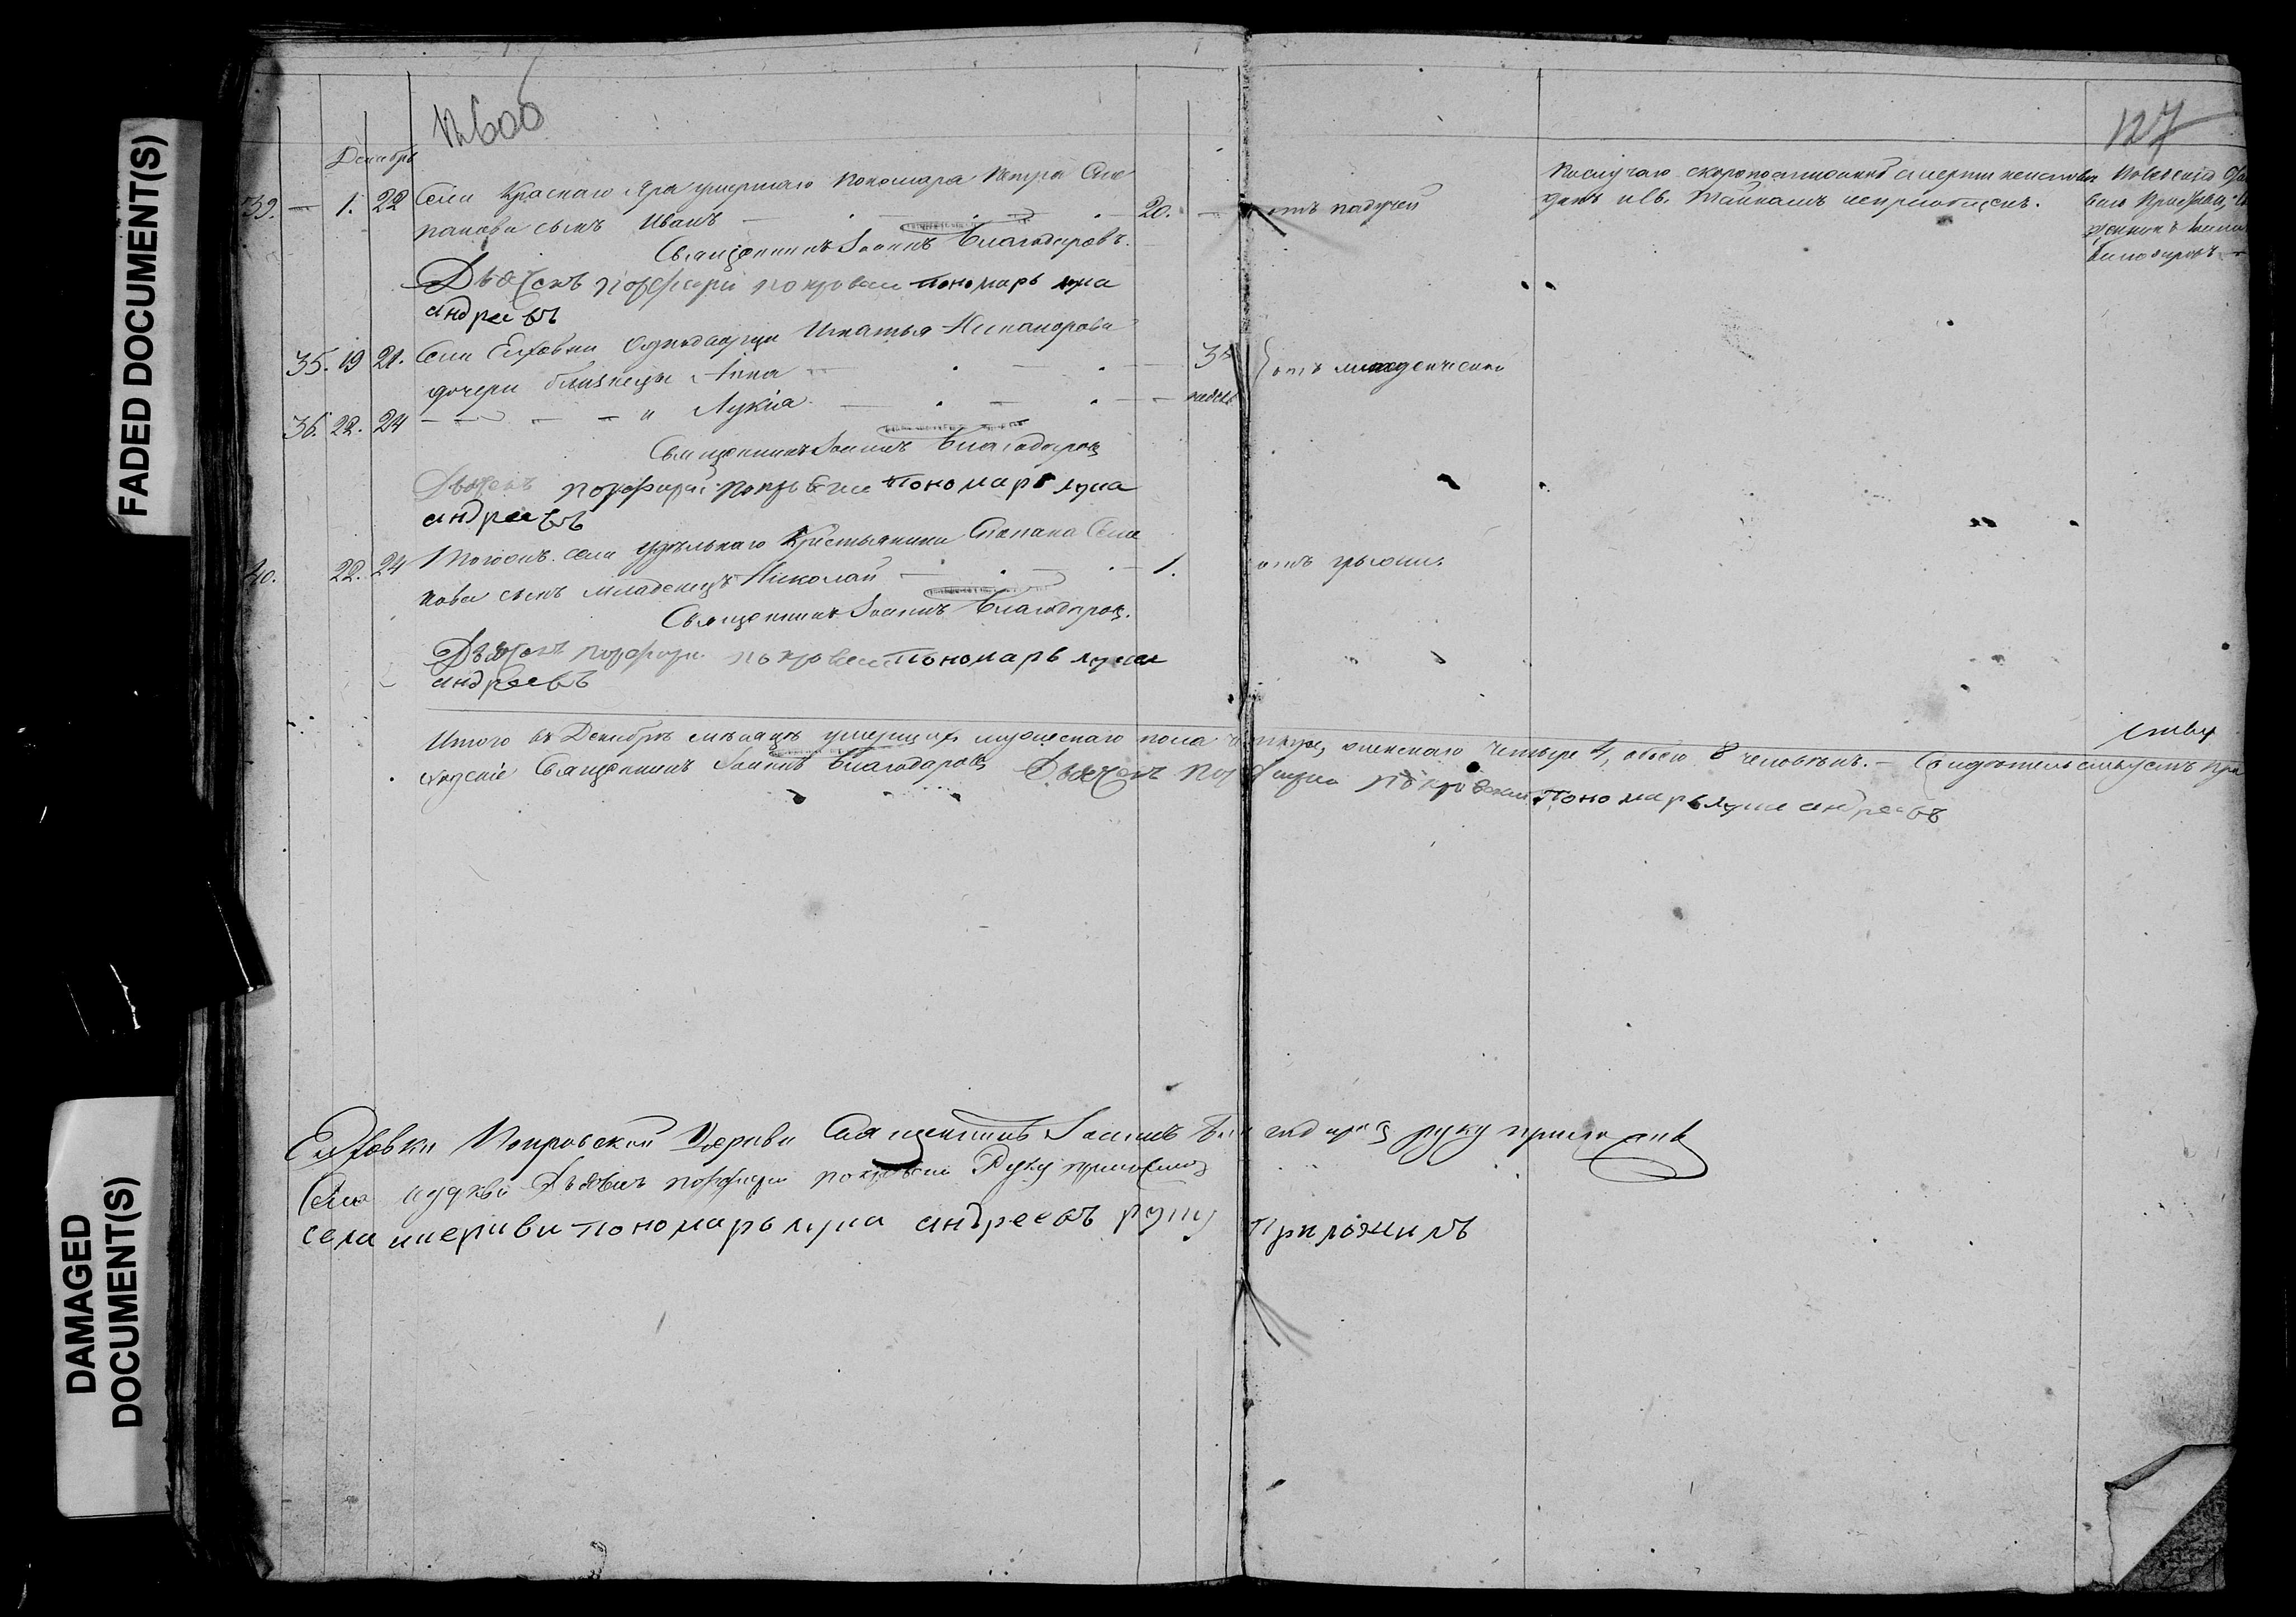 FADED DOCUMENT(S)
DAMAGED DOCUMENT(S)
127
Декабрь
39. — 1. 22 Села Краснаго Яра умершаго пономаря Петра Сте
панова сынъ Иванъ — 20. — отъ падучей
По случаю скоропостижной смерти неисповѣ
данъ и Св. Тайнамъ непріобщенъ.
Священникъ Іоаннъ Благодаровъ.
Дьячекъ Порфирий Покровски пономарь лука
андреевъ
35. 19 21. Села Елховки Игнатья Никанорова
дочери близнецы Анна — 3х отъ младенческой
36. 22. 24 — " Лукіа — недель
Священникъ Іоаннъ Благодаровъ
Дьячекъ порфирий Покровски пономарь лука
андреевъ
40. 22. 24 Тогожъ села удѣльнаго крестьянина Степана Семе
нова сынъ младенецъ Николай — 1. отъ грыжи
Священникъ Іоаннъ Благодаровъ.
Дьячекъ порфири покровски пономарь лука
андреевъ
Итого въ Декабрѣ мѣсяцѣ умершихъ мужескаго пола четыре, женскаго четыре 4, обоего 8 человѣкъ. — Свидѣтельствуетъ
Священникъ Іоаннъ Благодаровъ Дьячекъ Порфирий Покровски пономарь лука андреевъ
Елховки Покровской Церкви Священникъ Іоаннъ Благодаровъ руку приложилъ
Дьячекъ порфири покровски Руку приложилъ
села церкви пономарь лука андреевъ руку приложилъ